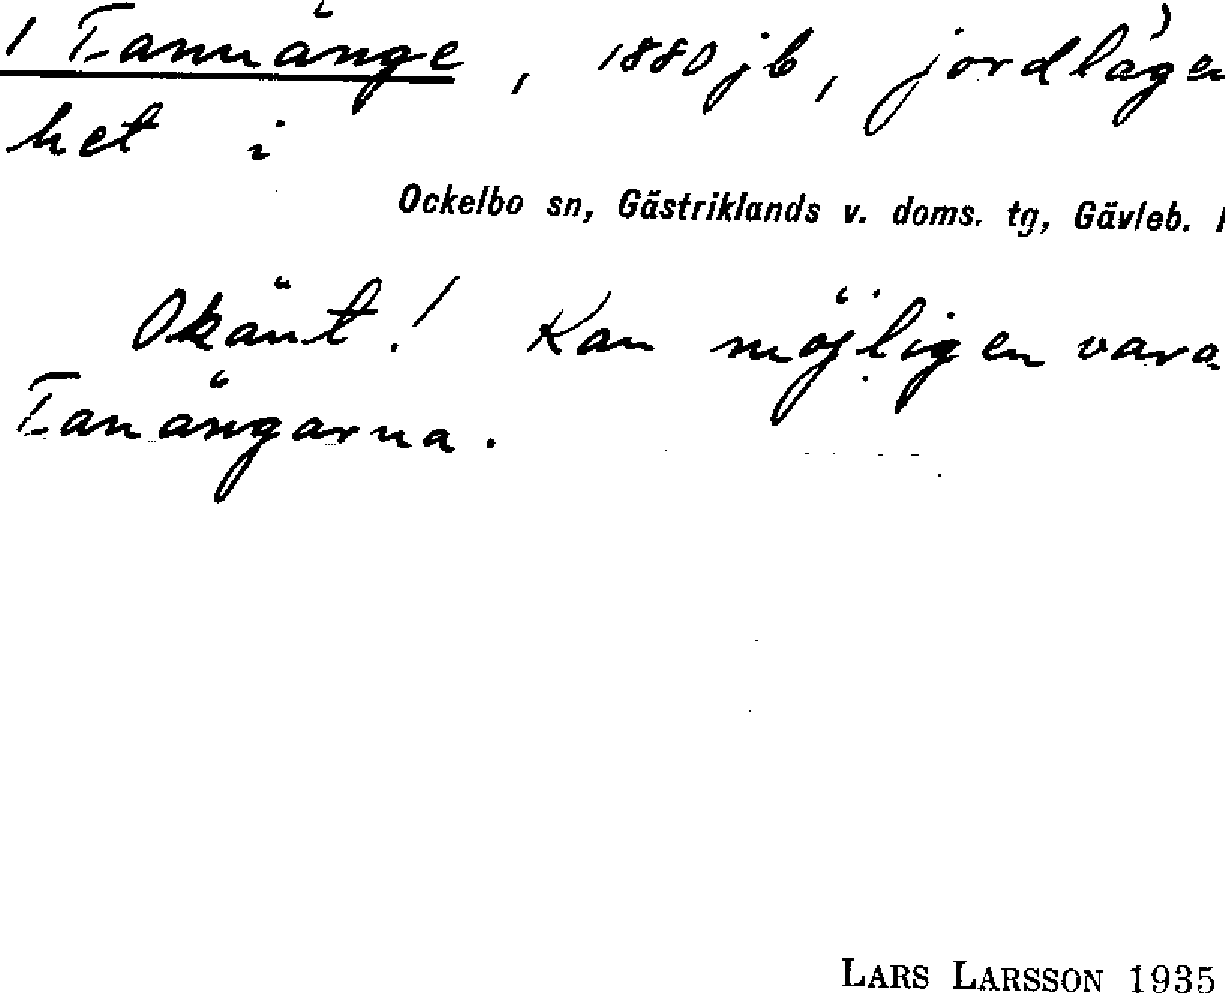 1 Fannänge, 1880 jb, jordlägen
het i
Ockelbo sn, Gästriklands v. doms. tg, Gävleb. l
Okänt! Kan möjligen vara
Fanängarna.
LARS LARSSON 1935